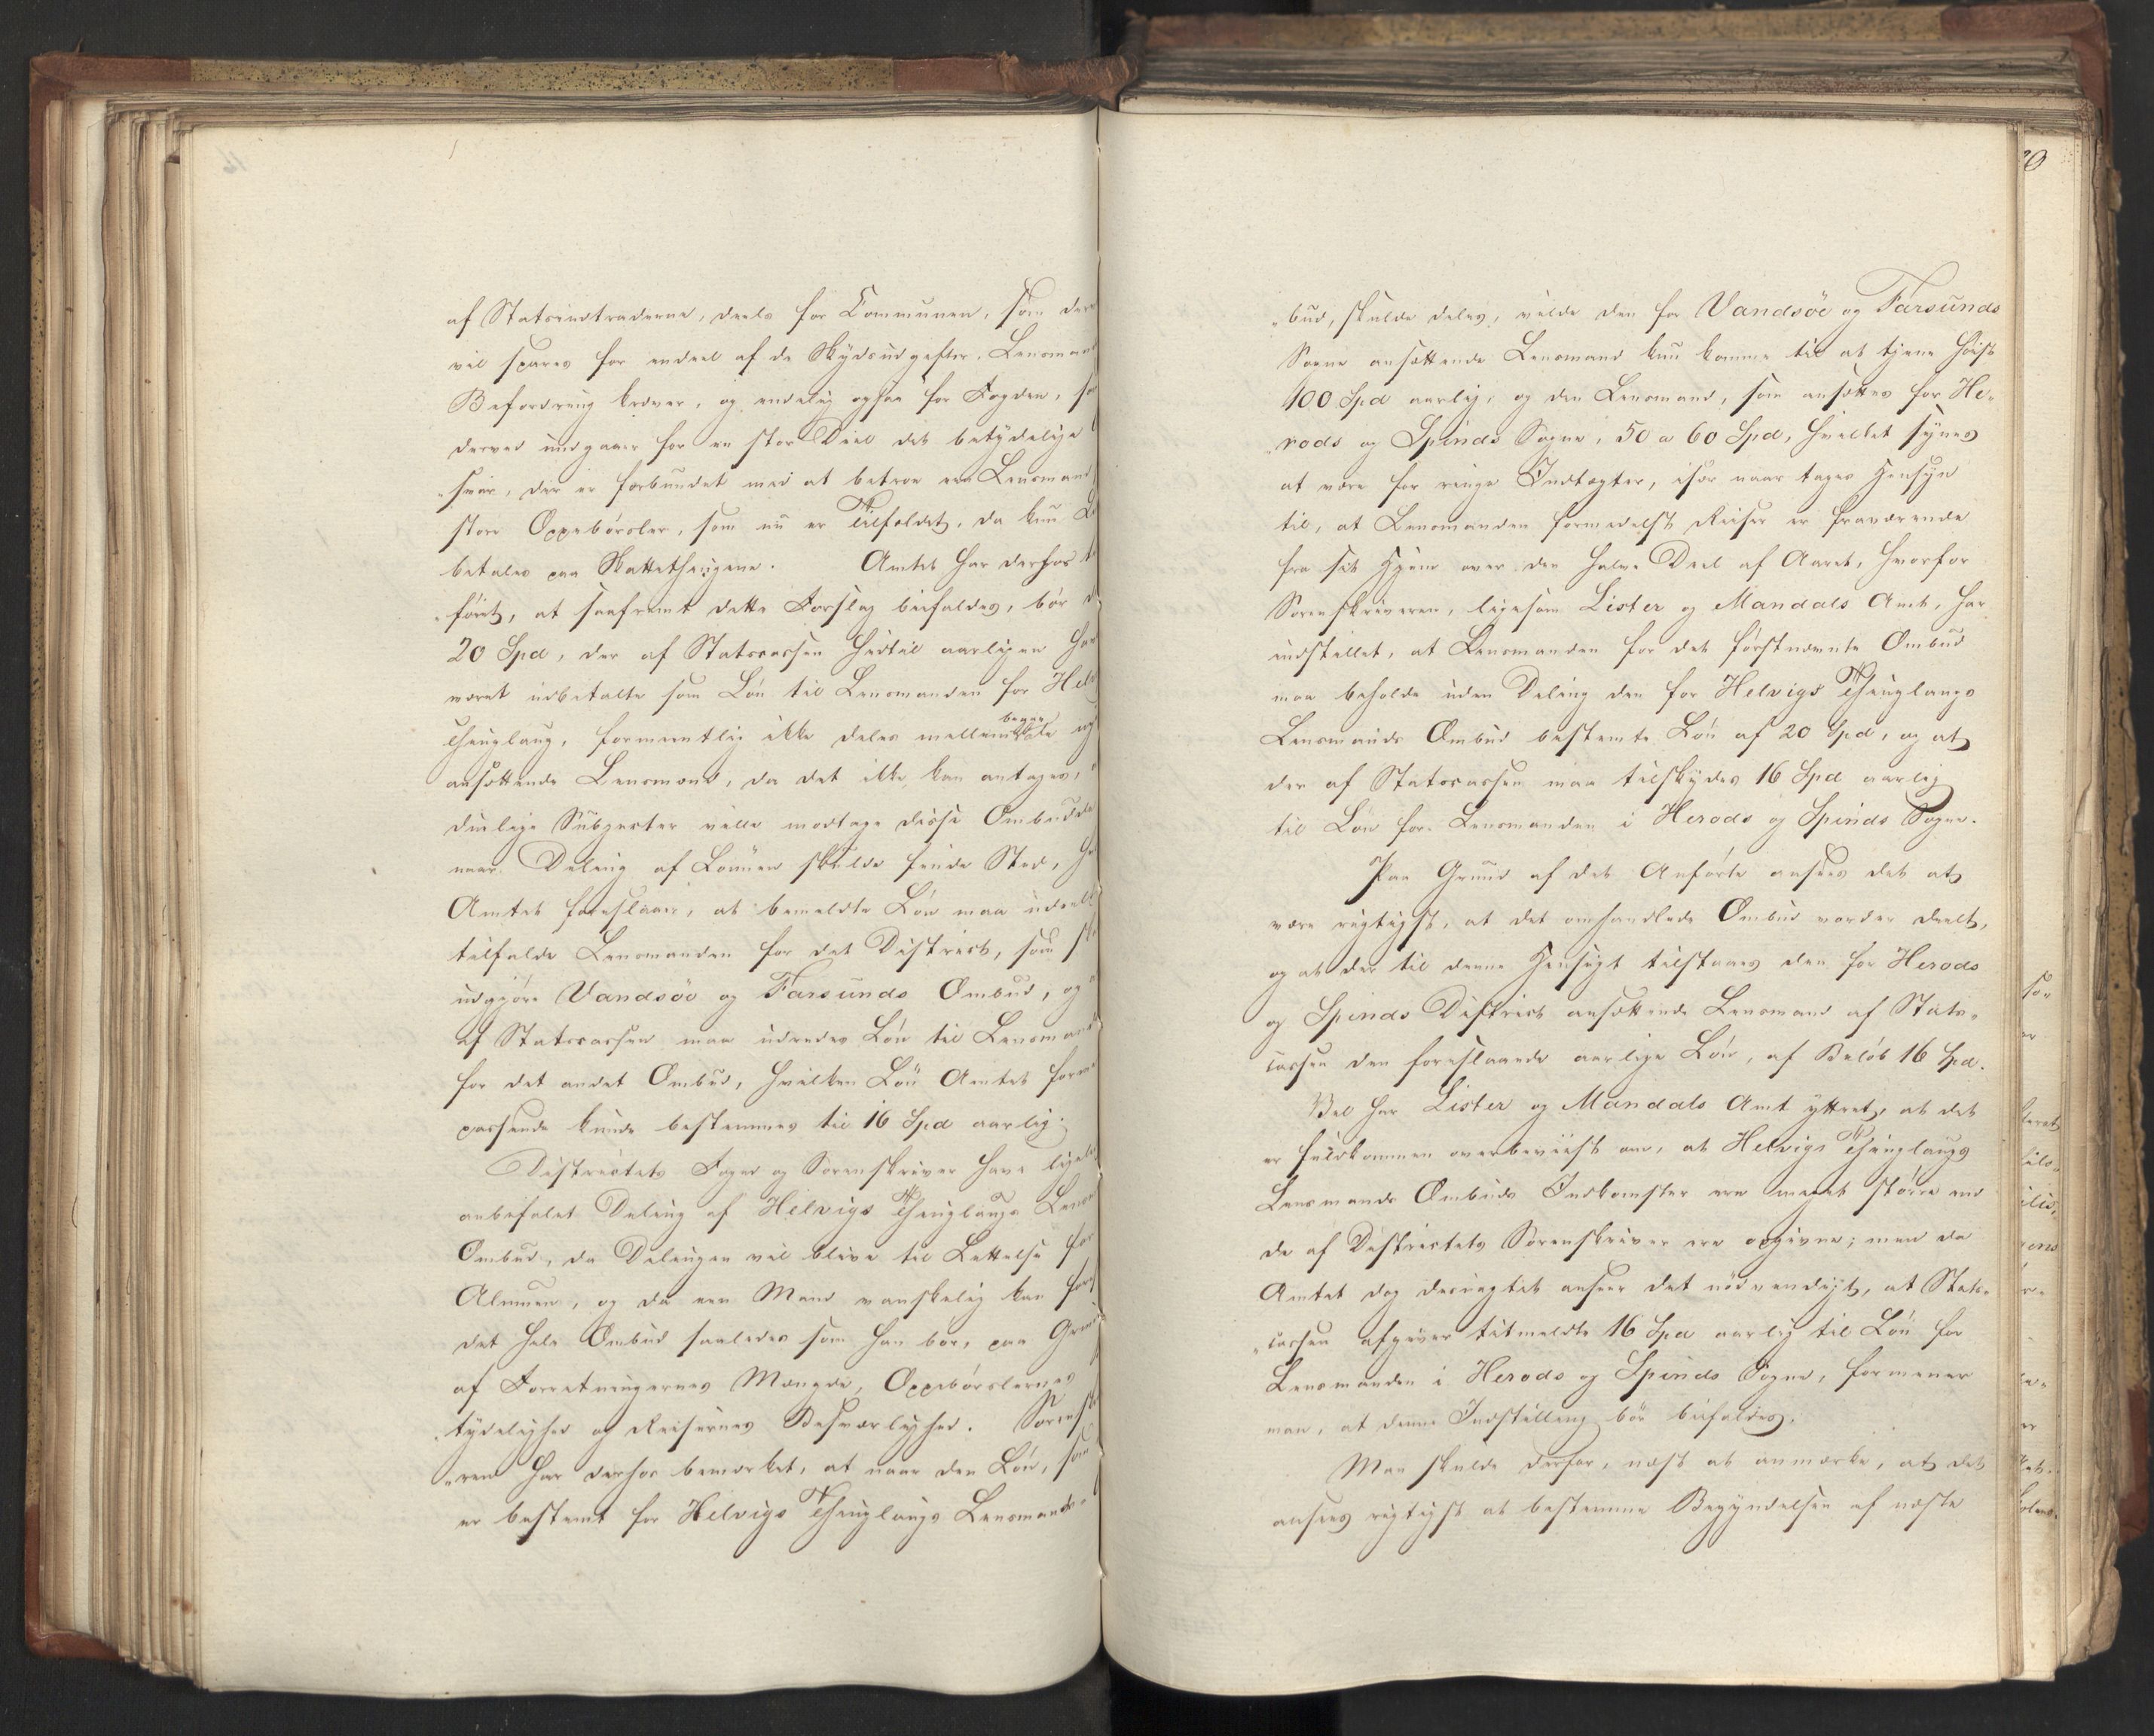 af Statsindtraderne, deels for Communen, som der
vil spares for endeel af de Skydsudgifter, Lensmand
Befordring kræver, og endelig ogsaa for Fogden, so
derved undgaaer for en stor Deel det betydelige
„svar, der er forbundet med at betroe een Lensmand
store Oppebørsler, som nu er Tilfældet, da kun
betales paa Skattethingene. Amtet har derfor
„ført, at saafremt dette Forslag bifaldes, bør d
20 Spd, der af Statscassen hidtil aarligen har
været udbetalte som Løn til Lensmanden for Helv
Thinglaug, formeentlig ikke deles mellem begge de
ansættende Lensmænd, da det ikke kan antages,
duelige Subjecter ville modtage disse Ombudde
naar Deling af Lønnen skulde finde Sted, h
Amtet foreslaaer, at bemeldte Løn maa udeelt
tilfalde Lensmanden for det District, som sk
udgjøre Vandsöe og Farsunds Ombud, og
af Statscassen maa udredes Løn til Lensmand
for det andet Ombud, hvilken Løn Amtet forme
passende kunde bestemmes til 16 Spd aarlig.
Districtets Foged og Sorenskriver have ligele
anbefalet Deling af Helvigs Thinglaugs Lens
Ombud, da Delingen vil blive til Lettelse for
Almuen, og da een Mand vanskelig kan fore
det hele Ombud saaledes som han bør, paa Grund
af Forretningernes Mængde, Oppebørslernes
„tydelighed og Reisernes Besværlighed. Sorensk
„ren har derhos bemærket, at naar den Løn, som
er bestemt for Helvigs Thinglaugs Lensmands-
„bud, skulde deles, vilde den for Vandsöe og Farsunds
Sogne ansættende Lensmand kun komme til at tjene høist
100 Spd aarlig, og den Lensmand, som ansættes for He„
„rods og Spinds Sogne, 50 a 60 Spd, hvilket synes
at være for ringe Indtægter, især naar tages Hensyn
til, at Lensmanden formedelst Reiser er fraværende
fra sit Hjem over den halve Deel af Aaret, hvorfor
Sorenskriveren, ligesom Lister og Mandals Amt, har
indstillet, at Lensmanden for det førstnævnte Ombud
maa beholde uden Deling den for Helvigs Thinglaugs
Lensmands Ombud bestemte Løn af 20 Spd, og at
der af Statscassen maa tilskydes 16 Spd aarlig
til Løn for Lensmanden i Herods og Spinds Sogne.
Paa Grund af det Anførte ansees det at
være rigtigst, at det omhandlede Ombud vorder deelt,
og at der til denne Hensigt tilstaaes den for Herods
og Spinds District ansættende Lensmand af Stats„
cassen den foreslaaede aarlige Løn, af Beløb 16 Spd.
Vel har Lister og Mandals Amt yttret, at det
er fuldkommen overbeviist om, at Helvigs Thinglaugs
Lensmands Ombuds Indkomster ere meget større end
de af Districtets Sorenskriver ere opgivne; men da
Amtet dog desuagtet anseer det nødvendigt, at Stats„
„cassen afgiver titmeldte 16 Spd aarlig til Løn for
Lensmanden i Herods og Spinds Sogne, formener
man, at denne Indstilling bør bifaldes.
Man skulde derfor, næst at anmærke, at det
ansees rigtigst at bestemme Begyndelsen af næste